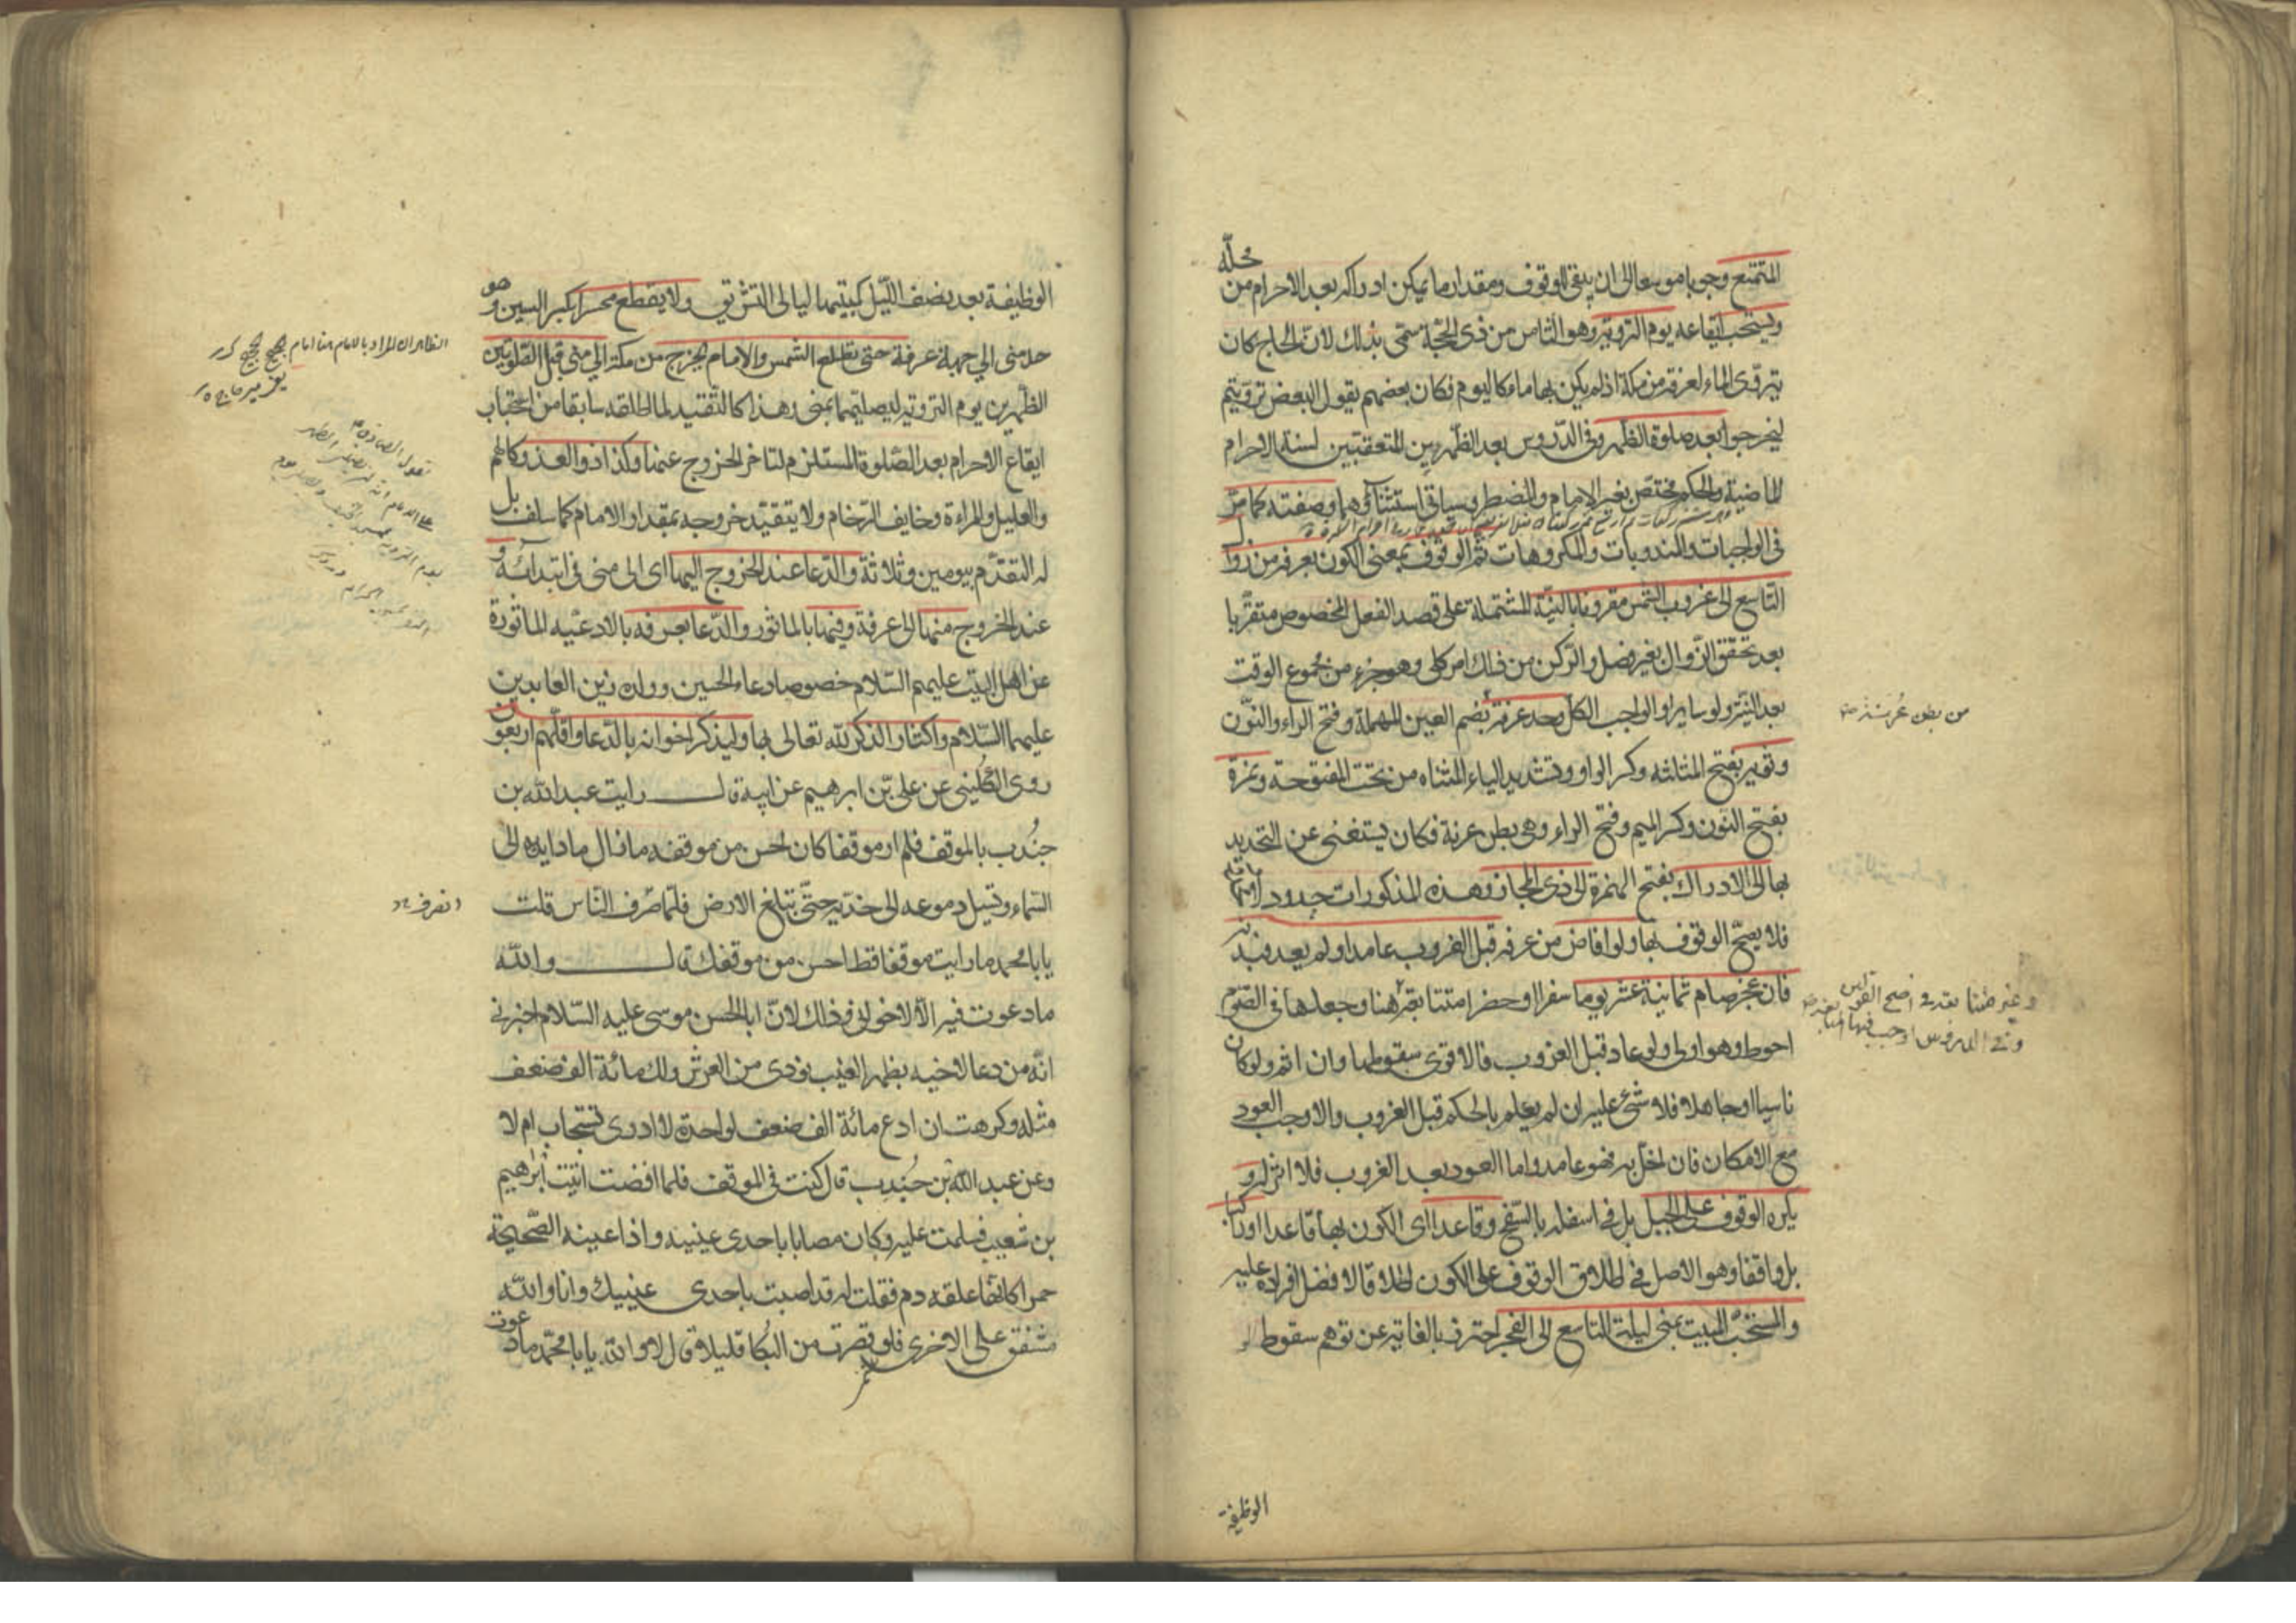 المتمتع وجوبا موسعا الى ان يبقى للوقوف ومقدار ما يمكن ادراكه بعد الاحرام من محله
ويستحب ايقاعه يوم التروية وهو الثامن من ذى الحجة سمى بذلك لان الحاج كان
يتروى الماء لعرفة من مكة اذ لم يكن بها ماء كاليوم فكان بعضهم يقول لبعض ترويتم
ليخرجوا بعد صلوة الظهر وفى الدروس بعد الظهرين المتعقبتين لسنة الاحرام
الماضية والحكم مختص بغير الامام والمضطر وسياتى استثناؤهما وصفته كما مر
فى الواجبات والمندوبات والمكروهات ثم الوقوف بمعنى الكون بعرفة من زوال
التاسع الى غروب الشمس مقرونا بالنية المشتملة على قصد الفعل المخصوص متقربا
بعد تحقق الزوال بغير فصل والركن من ذلك امر كلى وهو جزء من مجموع الوقت
بعد النية ولو سايرا والواجب الكل وحد عرفة بضم العين المهملة وفتح الراء والنون
وثوية بفتح المثلثه وكسر الواو وتشديد الياء المثناه من تحت المفتوحة ونمرة
بفتح النون وكسر الميم وفتح الراء وهى بطن عرنة فكان يستغنى عن التحديد
بها الى الاراك بفتح الهمزة الى ذى المجاز وهذه المذكورات حدود
فلا يصح الوقوف بها ولو افاض من عرفة قبل الغروب عامدا ولم يعد فبدنة
فان عجز صام ثمانية عشر يوما سفرا او حضرا متتابعة هنا وجعلها فى الصوم
احوط وهو اولى ولو عاد قبل الغروب فالاقوى سقوطها وان اثم ولو كان
ناسيا او جاهلا فلا شئ عليه ان لم يعلم بالحكم قبل الغروب والاوجب العود
مع الامكان فان اخل به فهو عامد واما العود بعد الغروب فلا اثر له و
يكره الوقوف على الجبل بل فى اسفله بالسفح وقاعدا اى الكون بها قاعدا او راكبا
بل واقفا وهو الاصل فى اطلاق الوقوف على الكون اطلاقا لافضل افراده عليه
والمستحب المبيت بمنى ليلة التاسع الى الفجر احترز بالغاية عن توهم سقوط
الوظيفة
من بطن عرنة
الوظيفة بعد نصف الليل كمبيتها ليالى التشريق ولا يقطع محسرا بكسر السين وهو
حد منى الى جهة عرفة حتى تطلع الشمس والامام يخرج من مكة الى منى قبل الصلوتين
الظهرين يوم التروية ليصليهما بمنى وهذا كالتقييد لما اطلقه سابقا من استحباب
ايقاع الاحرام بعد الصلوة المستلزم لتاخر الخروج عنها وكذا ذو العذر كالهم
والعليل والمراءة وخايف الزحام ولا يتقيد خروجه بمقدار الامام كما سلف بل
له التقدم بيومين وثلاثة والدعا عند الخروج اليها اى الى منى فى ابتدائه و
عند الخروج منها الى عرفة وفيها بالماثور والدعا بعرفه بالادعيه الماثورة
عن اهل البيت عليهم السلام خصوصا دعاء الحسين وولده زين العابدين
عليهما السلام واكثار الذكر لله تعالى بها وليذكر اخوانه بالدعا واقلهم اربعون
روى الكلينى عن على بن ابرهيم عن ابيه قال رايت عبد الله بن
جندب بالموقف فلم ار موقفا كان احسن من موقفه ما زال مادا يده الى
السماء وتسيل دموعه الى خديه حتى تبلغ الارض فلما صرف الناس قلت
يا با محمد ما رايت موقفا قط احسن من موقفك قال والله
ما دعوت فيه الا لاخوانى وذلك لان ابا الحسن موسى عليه السلام اخبرنى
انه من دعا لاخيه بظهر الغيب نودى من العرش ولك مائة الف ضعف
مثله وكرهت ان ادع مائة الف ضعف لواحدة لا ادرى تستجاب ام لا
وعن عبد الله بن جندب قال كنت فى الموقف فلما افضت اتيت ابرهيم
بن شعيب فسلمت عليه وكان مصابا باحدى عينيه واذا عينه الصحيحة
حمرا كانها علقه دم فقلت له قد اصبت باحدى عينيك وانا والله
مشفق على الاخرى فلو قصرت من البكا قليلا قال لا والله يا با محمد ما دعوت
الظاهر ان المراد بالامام هنا امام